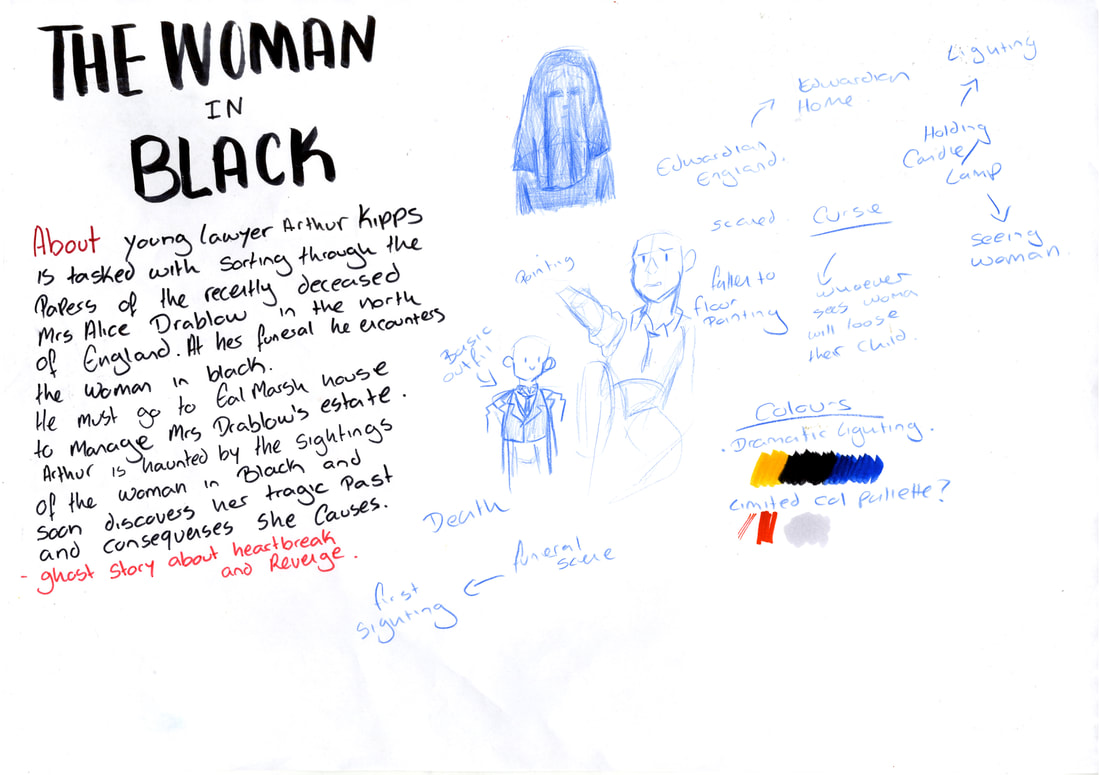 THE WOMAN
IN
BLACK
About young lawyer Arthur Kipps
is tasked with sorting through the
Papess of the recently deceased
Mrs Alice Drablow in the north
of England. At hes funeral he encounters
the woman in black.
He must go to Eal Marsh house
to manage Mrs Drablow's estate.
Arthur is haunted by the sightings
of the woman in Black and
soon discovers her tragic Past
and consequenses she Causes.
- ghost story about heartbreak
and Revenge.
Painting
Basic
outfit
Death
funeral
scene
first
sighting
Edwardian
England.
Edwardian
Home.
scared.
fallen to
floor
Painting
Curse
whoever
sees woma
will loose
ther child.
Lighting
Holding
Candle/
Lamp
seeing
woman.
Colours
. Dramatic lighting.
Limited col pallette?